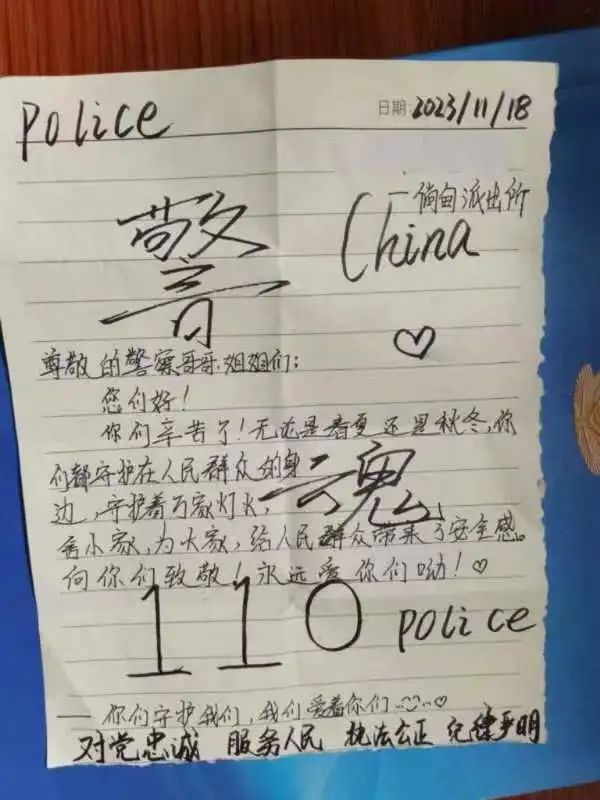 police
日期: 2023/11/18
—倘甸派出所
警
China
♡
尊敬的警察哥哥姐姐们:
您们好!
你们辛苦了!无论是春夏还是秋冬,你
们都守护在人民群众的身
边,守护着万家灯火,
魂
舍小家,为大家,给人民群众带来了安全感。
向你们致敬!永远爱你们呦!♡
110 police
——你们守护我们,我们爱着你们 ♡
对党忠诚 服务人民 执法公正 纪律严明